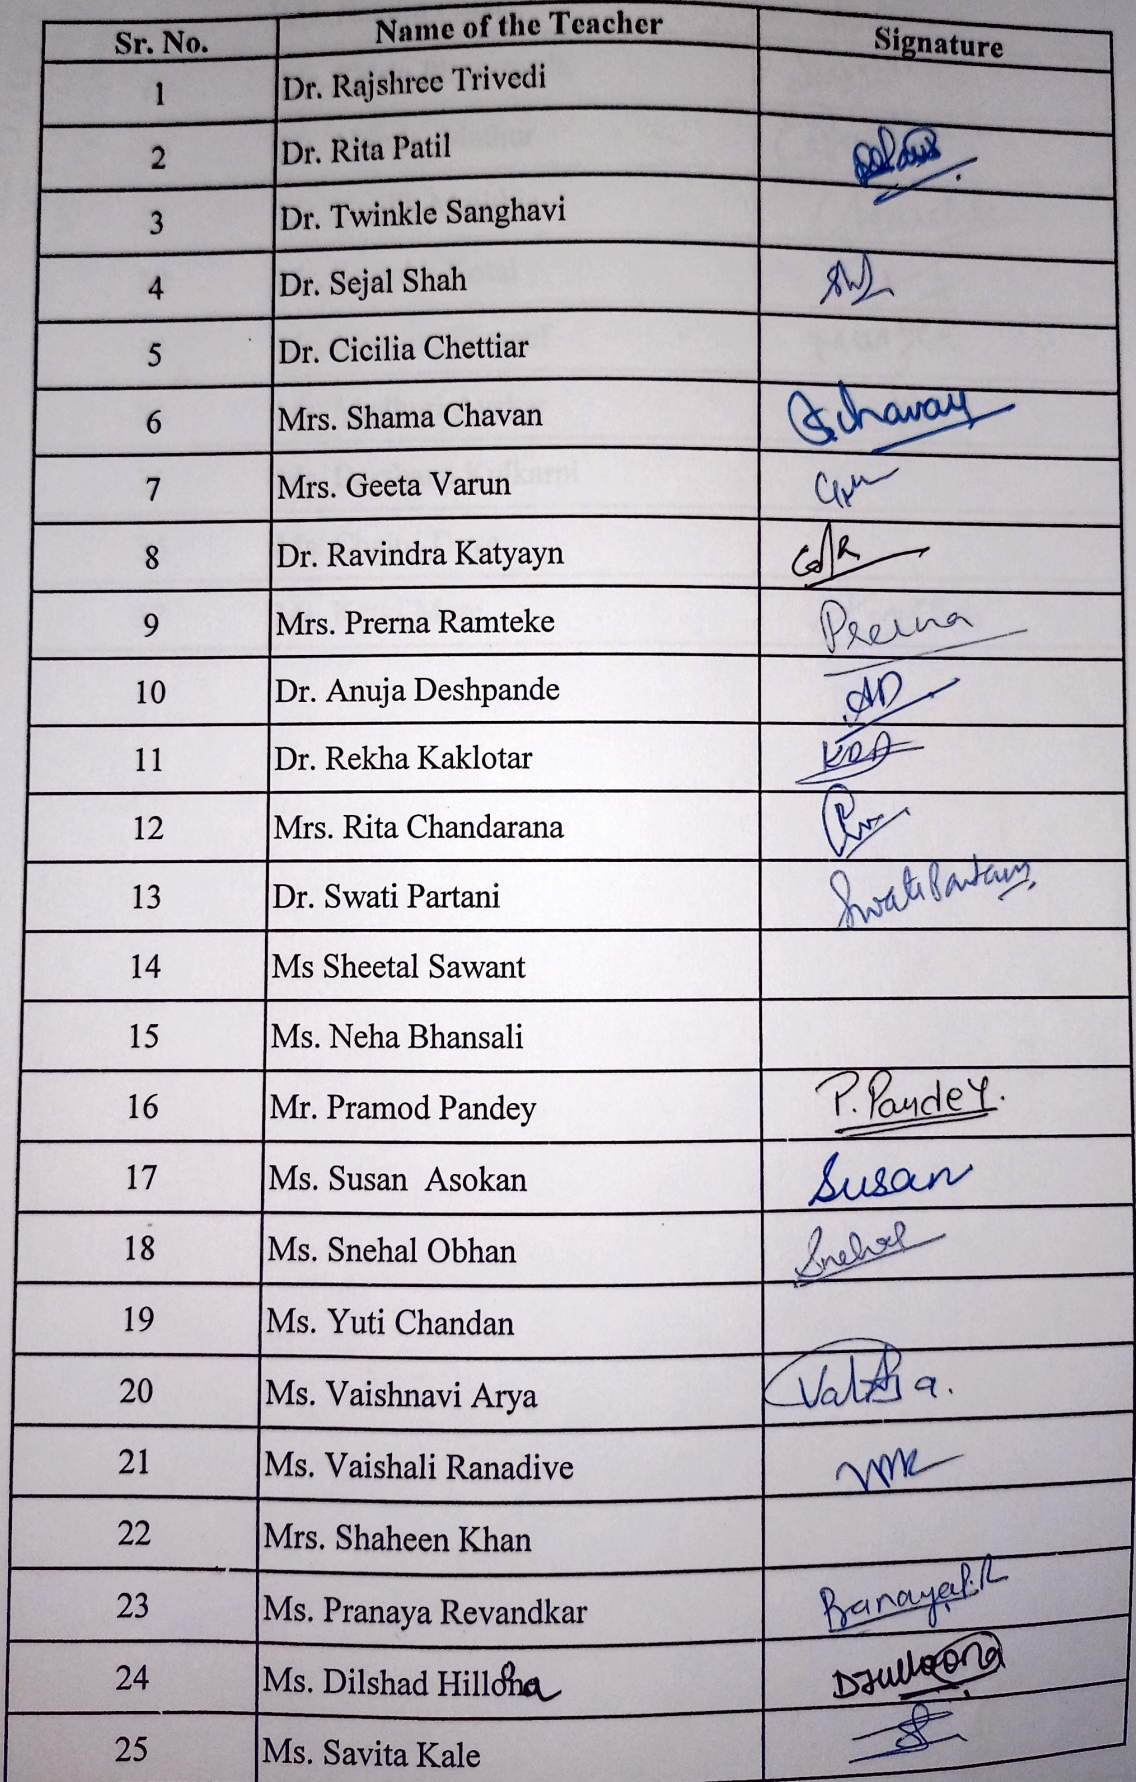 Sr. No. Name of the Teacher Signature
1 Dr. Rajshree Trivedi
2 Dr. Rita Patil
3 Dr. Twinkle Sanghavi
4 Dr. Sejal Shah
5 Dr. Cicilia Chettiar
6 Mrs. Shama Chavan Schavan
7 Mrs. Geeta Varun
8 Dr. Ravindra Katyayn
9 Mrs. Prerna Ramteke Prerna
10 Dr. Anuja Deshpande AD
11 Dr. Rekha Kaklotar
12 Mrs. Rita Chandarana
13 Dr. Swati Partani Swati Partani
14 Ms Sheetal Sawant
15 Ms. Neha Bhansali
16 Mr. Pramod Pandey P. Pandey.
17 Ms. Susan Asokan Susan
18 Ms. Snehal Obhan Snehal
19 Ms. Yuti Chandan
20 Ms. Vaishnavi Arya
21 Ms. Vaishali Ranadive
22 Mrs. Shaheen Khan
23 Ms. Pranaya Revandkar
24 Ms. Dilshad Hilloha
25 Ms. Savita Kale